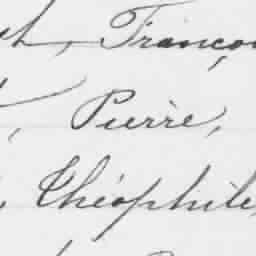 Françoi
, Pierre,
, Théophile,